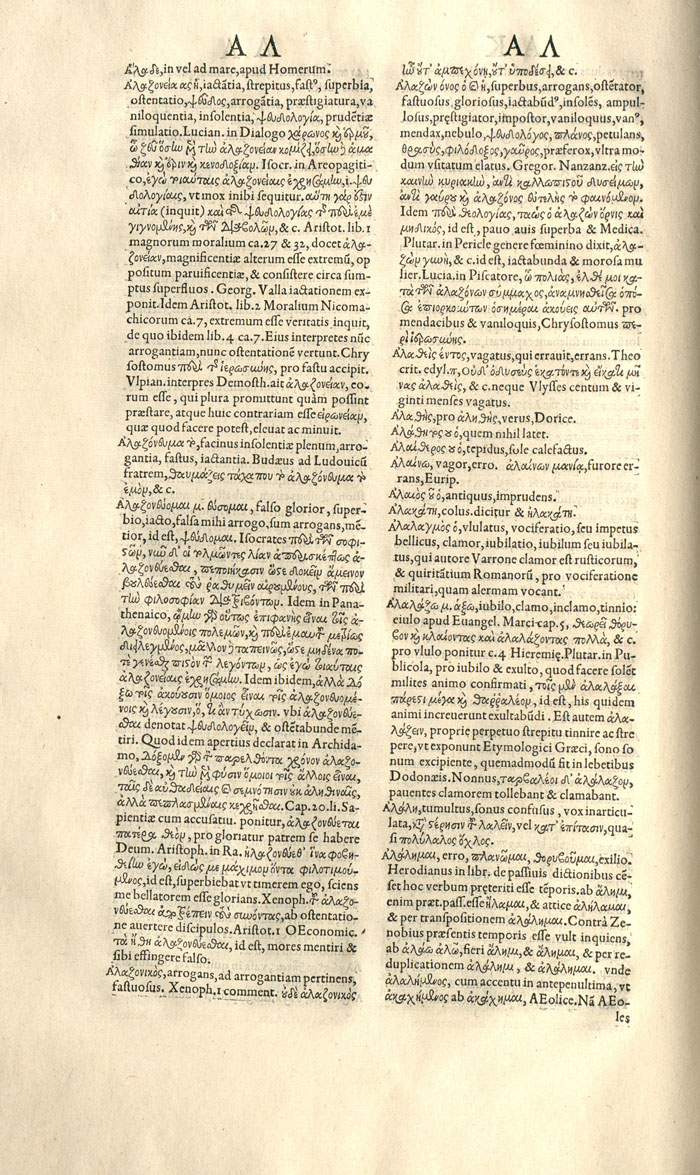 Α Λ
Ἅλαδε, in vel ad mare, apud Homerum.
Ἀλαζονεία ας ἡ, iactãtia, strepitus, fastꝰ, superbia,
ostentatio, ψεῦδος, arrogãtia, præstigiatura, va
niloquentia, insolentia, ψευδολογία, prudẽtiæ
simulatio. Lucian. in Dialogo χάρωνος καὶ ἑρμοῦ,
Isocr. in Areopagiti-
co, ἐγὼ τοιαύταις ἀλαζονείαις ἐχρησάμην, i. ψευ
δολογίαις, vt mox inibi sequitur. αὕτη γὰρ
αἰτία (inquit) καὶ ψευδολογίας
γιγνομένης, καὶ τῶν διαβολῶν, & c. Aristot. lib. 1
magnorum moralium ca. 27 & 32, docet ἀλα-
ζονείαν, magnificentiæ alterum esse extremũ, op
positum paruificentiæ, & consistere circa sum-
ptus superfluos. Georg. Valla iactationem ex-
ponit. Idem Aristot. lib. 2 Moralium Nicoma-
chicorum ca. 7, extremum esse veritatis inquit,
de quo ibidem lib. 4 ca. 7. Eius interpretes nũc
arrogantiam, nunc ostentationẽ vertunt. Chry
sostomus περὶ τ ἱερωσύνης, pro fastu accipit.
Vlpian. interpres Demosth. ait ἀλαζονείαν, eo-
rum esse, qui plura promittunt quàm possint
præstare, atque huic contrariam esse εἰρωνείαν,
quæ quod facere potest, eleuat ac minuit.
Ἀλαζόνευμα τ, facinus insolentiæ plenum, arro-
gantia, fastus, iactantia. Budæus ad Ludouicũ
fratrem, θαυμάζεις τάχα που τ ἀλαζόνευμα τ
ἐμὸν, & c.
Ἀλαζονεύομαι μ. εύσομαι, falso glorior, super-
bio, iacto, falsa mihi arrogo, sum arrogans, mẽ-
tior, id est, ψεύδομαι. Isocrates περὶ τῶν σοφι-
στῶν, νῦν δ' οἱ τολμῶντες λίαν ἀπερισκέπτως ἀ-
λαζονεύεσθαι, πεποιήκασιν ὥστε δοκεῖν ἄμεινον
βουλεύεσθαι τοὺς ῥᾳθυμεῖν αἱρουμένους, τῶν περὶ
τὴν φιλοσοφίαν διατριβόντων. Idem in Pana-
thenaico,
ἀλαζονευομένοις
ἀλαζονείαις ἐχρησάμην. Idem ibidem, ἀλλὰ
ἀκούουσιν ὅμοιος εἶναι τοῖς ἀλαζονευομέ-
νοις καὶ λέγουσιν, ὅ, τι ἂν τύχωσιν. vbi ἀλαζονεύε-
σθαι denotat ψευδολογεῖν, & ostẽtabunde mẽ-
tiri. Quod idem apertius declarat in Archida-
mo,
νεύεσθαι, καὶ τὴν φύσιν ὅμοιοι τοῖς ἄλλοις εἶναι,
ἀλλὰ πεπλασμέναις κεχρῆσθαι. Cap. 20. li. Sa-
pientiæ cum accusatiu. ponitur, ἀλαζονεύεται
πατέρα θεὸν, pro gloriatur patrem se habere
Deum. Aristoph. in Ra.
νος, id est, superbiebat vt timerem ego, sciens
me bellatorem esse glorians. Xenoph. τ ἀλαζο-
νεύεσθαι ἀποτρέπειν τοὺς συνόντας, ab ostentatio-
ne auertere discipulos. Aristot. 1 OEconomic.
τὰ ἤθη ἀλαζονεύεσθαι, id est, mores mentiri &
sibi effingere falso.
Ἀλαζονικὸς, arrogans, ad arrogantiam pertinens,
fastuosus. Xenoph. 1 comment. οὐδὲ ἀλαζονικὸς
Α Λ
ἦν οὔτ' ἀμπεχόνῃ, οὔτ' ὑποδέσει, & c.
Ἀλαζὼν όνος ὁ καὶ ἡ, superbus, arrogans, ostẽtator,
fastuosus, gloriosus, iactabũdꝰ, insolẽs, ampul-
losus, prestigiator, impostor, vaniloquus, vanꝰ,
mendax, nebulo, ψευδολόγος, πλάνος, petulans,
θρασὺς, φιλόδοξος, γαῦρος, præferox, vltra mo-
dum vsitatum elatus. Gregor. Nanzanz. εἰς τὴν
καινὴν κυριακὴν,
Idem περὶ θεολογίας, ταὼς ὁ ἀλαζὼν ὄρνις καὶ
μηδικὸς, id est, pauo auis superba & Medica.
Plutar. in Pericle genere fœminino dixit, ἀλα-
ζὼν γυνὴ, & c. id est, iactabunda & morosa mu
lier. Lucia. in Piscatore, ὦ πολιὰς, ἐλθέ μοι κα-
τὰ τῶν ἀλαζόνων σύμμαχος, ἀναμνησθεῖσα ὁπό-
σα ἐπιορκούντων ὁσημέραι ἀκούεις αὐτῶν. pro
mendacibus & vaniloquis, Chrysostomus πε-
ρὶ ἱερωσύνης.
Ἀλαθεὶς έντος, vagatus, qui errauit, errans. Theo
crit. edyl. π, Οὐδ' ὀδυσεὺς ἑκατόν τε καὶ εἴκατι μῆ
νας ἀλαθεὶς, & c. neque Vlysses centum & vi-
ginti menses vagatus.
Ἀλαθὴς, pro ἀληθὴς, verus, Dorice.
quem nihil latet.
tepidus, sole calefactus.
Ἀλαίνω, vagor, erro. ἀλαίνων μανίᾳ, furore er-
rans, Eurip.
Ἀλαιὸς οῦ ὁ, antiquus, imprudens.
Ἀλακάτη, colus. dicitur & ἠλακάτη.
Ἀλαλαγμὸς ὁ, vlulatus, vociferatio, seu impetus
bellicus, clamor, iubilatio, iubilum seu iubila-
tus, qui autore Varrone clamor est rusticorum,
& quiritãtium Romanorũ, pro vociferatione
militari, quam alermam vocant.
Ἀλαλάζω μ. άξω, iubilo, clamo, inclamo, tinnio:
eiulo apud Euangel. Marci cap. 5, θεωρεῖ θόρυ-
βον καὶ κλαίοντας καὶ ἀλαλάζοντας πολλὰ, & c.
pro vlulo ponitur c. 4 Hieremię. Plutar. in Pu-
blicola, pro iubilo & exulto, quod facere solẽt
milites animo confirmati, τοῖς μὲν ἀλαλάξαι
παρέστη μέγα καὶ θαρραλέον, id est, his quidem
animi increuerunt exultabũdi. Est autem ἀλα-
λάζειν, proprie perpetuo strepitu tinnire ac stre
pere, vt exponunt Etymologici Græci, sono so
num excipiente, quemadmodũ fit in lebetibus
Dodonæis. Nonnus, ταρβαλέοι δ' ἀλάλαζον,
pauentes clamorem tollebant & clamabant.
Ἀλάλη, tumultus, sonus confusus, vox inarticu-
lata, κατὰ στέρησιν τ λαλεῖν, vel κατ' ἐπίτασιν, qua-
si πολύλαλος ὄχλος.
Ἀλάλημαι, erro, πλανῶμαι, θορυβοῦμαι, exilio.
Herodianus in libr. de passiuis dictionibus cẽ-
set hoc verbum pręteriti esse tẽporis. ab ἄλημι,
enim præt. pass. esse ἤλαμαι, & attice ἀλήλαμαι,
& per transpositionem ἀλάλημαι. Contrà Ze-
nobius præsentis temporis esse vult inquiens,
ab ἀλάω ἀλῶ, fieri ἄλημι, & ἄλημαι, & per re-
duplicationem ἀλάλημι, & ἀλάλημαι. vnde
ἀλαλήμενος, cum accentu in antepenultima, vt
ἀκαχήμενος ab ἀκάχημαι, AEolice. Nã AEo-
les